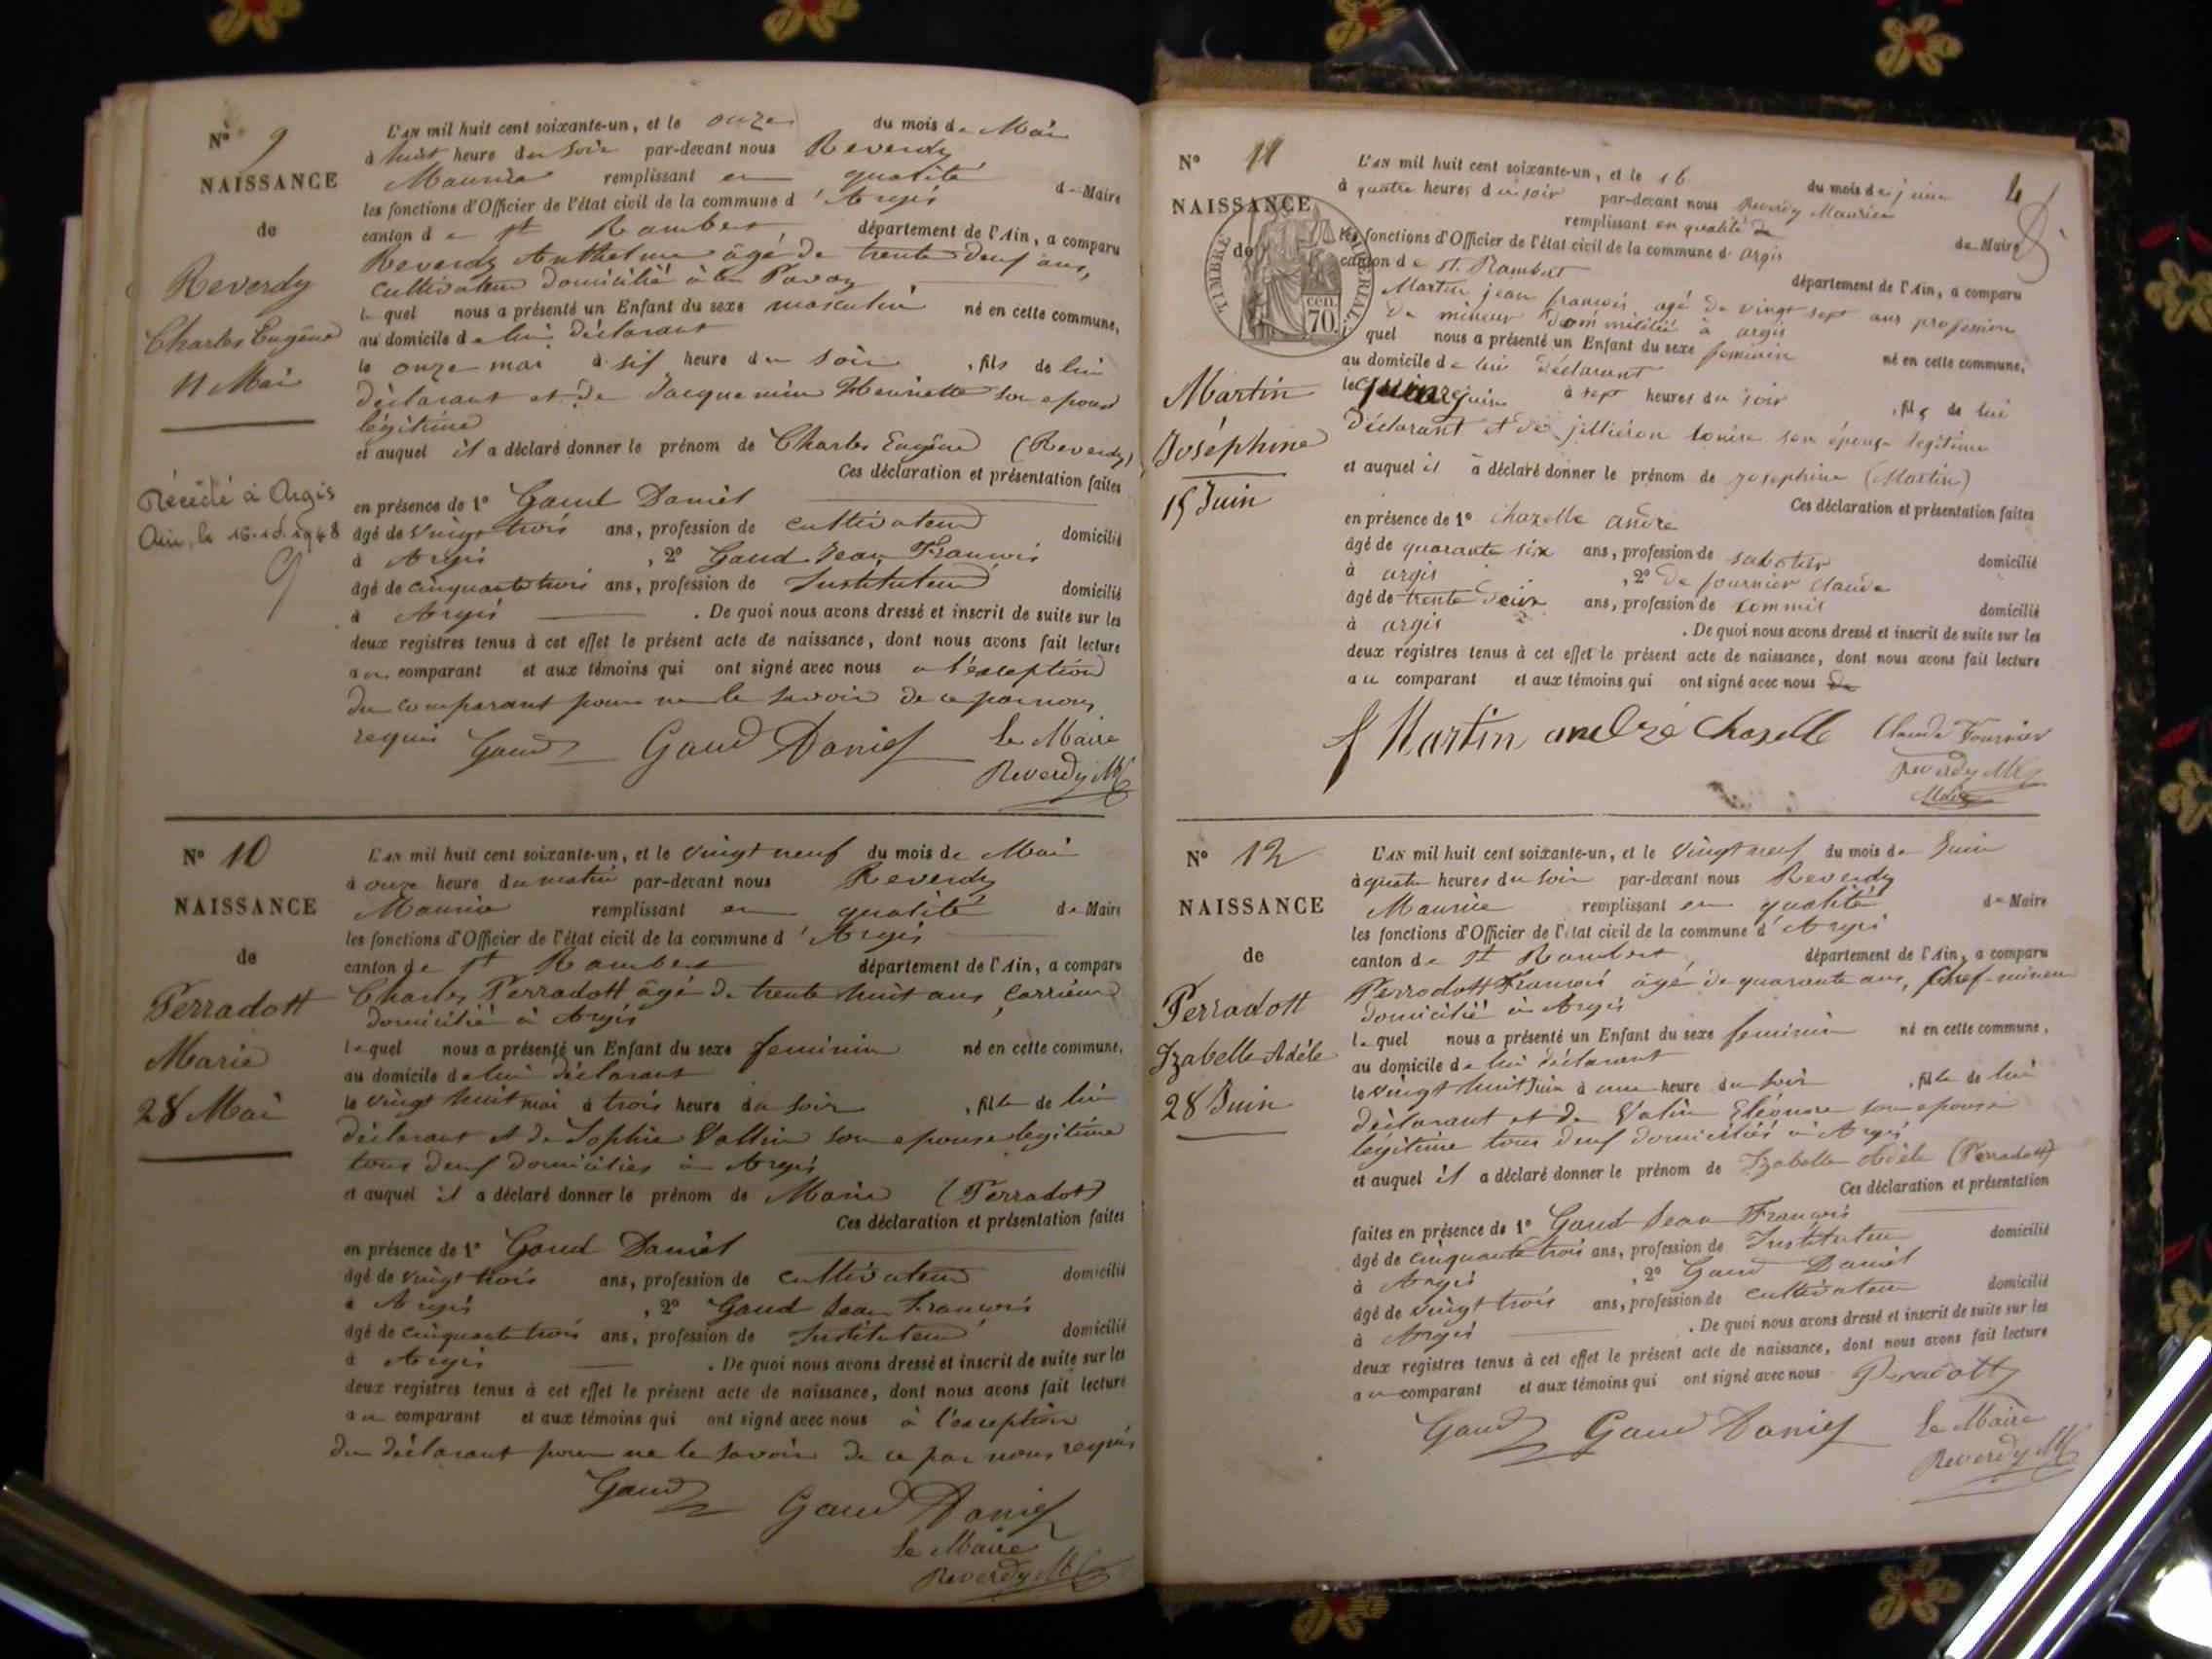 N° 9
NAISSANCE
de
Reverdy
Charles Eugène
11 Mai
Décédé à Argis
Ain, le 16.10.1948
L'AN mil huit cent soixante-un, et le onze du mois de Mai
à huit heure du soir par-devant nous Reverdy
Maurice remplissant en qualité de Maire
les fonctions d'Officier de l'état civil de la commune d'Argis
canton de St Rambert, département de l'Ain, a comparu
Reverdy Anthelme âgé de trente deux ans,
cultivateur domicilié à
lequel nous a présenté un Enfant du sexe masculin né en cette commune,
au domicile de lui déclarant
le onze mai à six heure du soir, fils de lui
déclarant et de Jacquemin Henriette son epouse
légitime
et auquel il a déclaré donner le prénom de Charles Eugène (Reverdy)
Ces déclaration et présentation faites
en présence de 1° Gaud Daniel
âgé de vingt trois ans, profession de cultivateur domicilié
à Argis, 2° Gaud Jean François
âgé de cinquante trois ans, profession de Instituteur domicilié
à Argis. De quoi nous avons dressé et inscrit de suite sur les
deux registres tenus à cet effet le présent acte de naissance, dont nous avons fait lecture
au comparant et aux témoins qui ont signé avec nous à l'exception
du comparant pour ne le savoir de ce par nous
requis Gaud Gaud Daniel Le Maire
Reverdy M
N° 10
NAISSANCE
de
Perradott
Marie
28 Mai
L'AN mil huit cent soixante-un, et le vingt neuf du mois de Mai
à onze heure du matin par-devant nous Reverdy
Maurice remplissant en qualité de Maire
les fonctions d'Officier de l'état civil de la commune d'Argis
canton de St Rambert département de l'Ain, a comparu
Charles Perradott âgé de trente huit ans, carrieur
domicilié à Argis
lequel nous a présenté un Enfant du sexe feminin né en cette commune,
au domicile de lui déclarant
le vingt huit mai à trois heure du soir, fille de lui
déclarant et de Sophie Vallin son epouse legitime
tous deux domiciliés à Argis
et auquel il a déclaré donner le prénom de Marie (Perradot)
Ces déclaration et présentation faites
en présence de 1° Gaud Daniel
âgé de vingt trois ans, profession de cultivateur domicilié
à Argis, 2° Gaud Jean François
âgé de cinquante trois ans, profession de Instituteur domicilié
à Argis. De quoi nous avons dressé et inscrit de suite sur les
deux registres tenus à cet effet le présent acte de naissance, dont nous avons fait lecture
au comparant et aux témoins qui ont signé avec nous à l'exception
du déclarant pour ne le savoir de ce par nous requis
Gaud Gaud Daniel
Le Maire
Reverdy M
4
N° 11
NAISSANCE
de
TIMBRE IMPERIAL
70 cen.
Martin
Joséphine
15 Juin
L'AN mil huit cent soixante-un, et le 16 du mois de juin
à quatre heures du soir par-devant nous Reverdy Maurice
remplissant en qualité de de Maire
les fonctions d'Officier de l'état civil de la commune d'argis
canton de St. Rambert département de l'Ain, a comparu
Martin jean francois agé de vingt sept ans profession
de mineur dommicilié à argis
quel nous a présenté un Enfant du sexe feminin né en cette commune,
au domicile de lui déclarant
le quinze juin à sept heures du soir, fils de lui
déclarant et de jilliéron louise son épouse legitime
et auquel il a déclaré donner le prénom de josephine (Martin)
Ces déclaration et présentation faites
en présence de 1° chazelle andre
âgé de quarante six ans, profession de sabotier domicilié
à argis, 2° de fournier claude
âgé de trente deux ans, profession de commis domicilié
à argis. De quoi nous avons dressé et inscrit de suite sur les
deux registres tenus à cet effet le présent acte de naissance, dont nous avons fait lecture
au comparant et aux témoins qui ont signé avec nous de
f Martin andré chazelle Claude Fournier
Reverdy M
Maire
N° 12
NAISSANCE
de
Perradott
Izabelle Adèle
28 Juin
L'AN mil huit cent soixante-un, et le vingt neuf du mois de Juin
à quatre heures du soir par-devant nous Reverdy
Maurice remplissant en qualité de Maire
les fonctions d'Officier de l'état civil de la commune d'Argis
canton de St Rambert, département de l'Ain, a comparu
Perrodott François âgé de quarante ans, chef-mineur
domicilié à Argis
lequel nous a présenté un Enfant du sexe feminin né en cette commune,
au domicile de lui déclarant
le vingt huit Juin à une heure du soir, fille de lui
déclarant et de Valin Eléonore son epouse
légitime tous deux domiciliés à Argis
et auquel il a déclaré donner le prénom de Izabelle Adèle (Perradott)
Ces déclaration et présentation
faites en présence de 1° Gaud Jean François
âgé de cinquante trois ans, profession de Instituteur domicilié
à Argis, 2° Gaud Daniel
âgé de vingt trois ans, profession de cultivateur domicilié
à Argis. De quoi nous avons dressé et inscrit de suite sur les
deux registres tenus à cet effet le présent acte de naissance, dont nous avons fait lecture
au comparant et aux témoins qui ont signé avec nous Peradott
Gaud Gaud Daniel Le Maire
Reverdy M